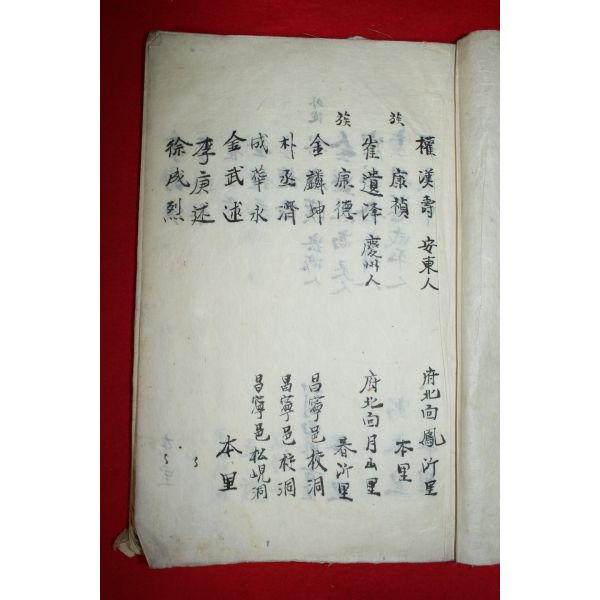 權漢壽 安東人 府北面鳳沂里
族 康禎 本里
崔遺澤 慶州人 府北面月山里
族 康德 春沂里
金麟坤 昌寧邑校洞
朴丞濟 昌寧邑校洞
成華永 昌寧邑松峴洞
金武述 本里
李庚述 〻
徐成烈 〻〻